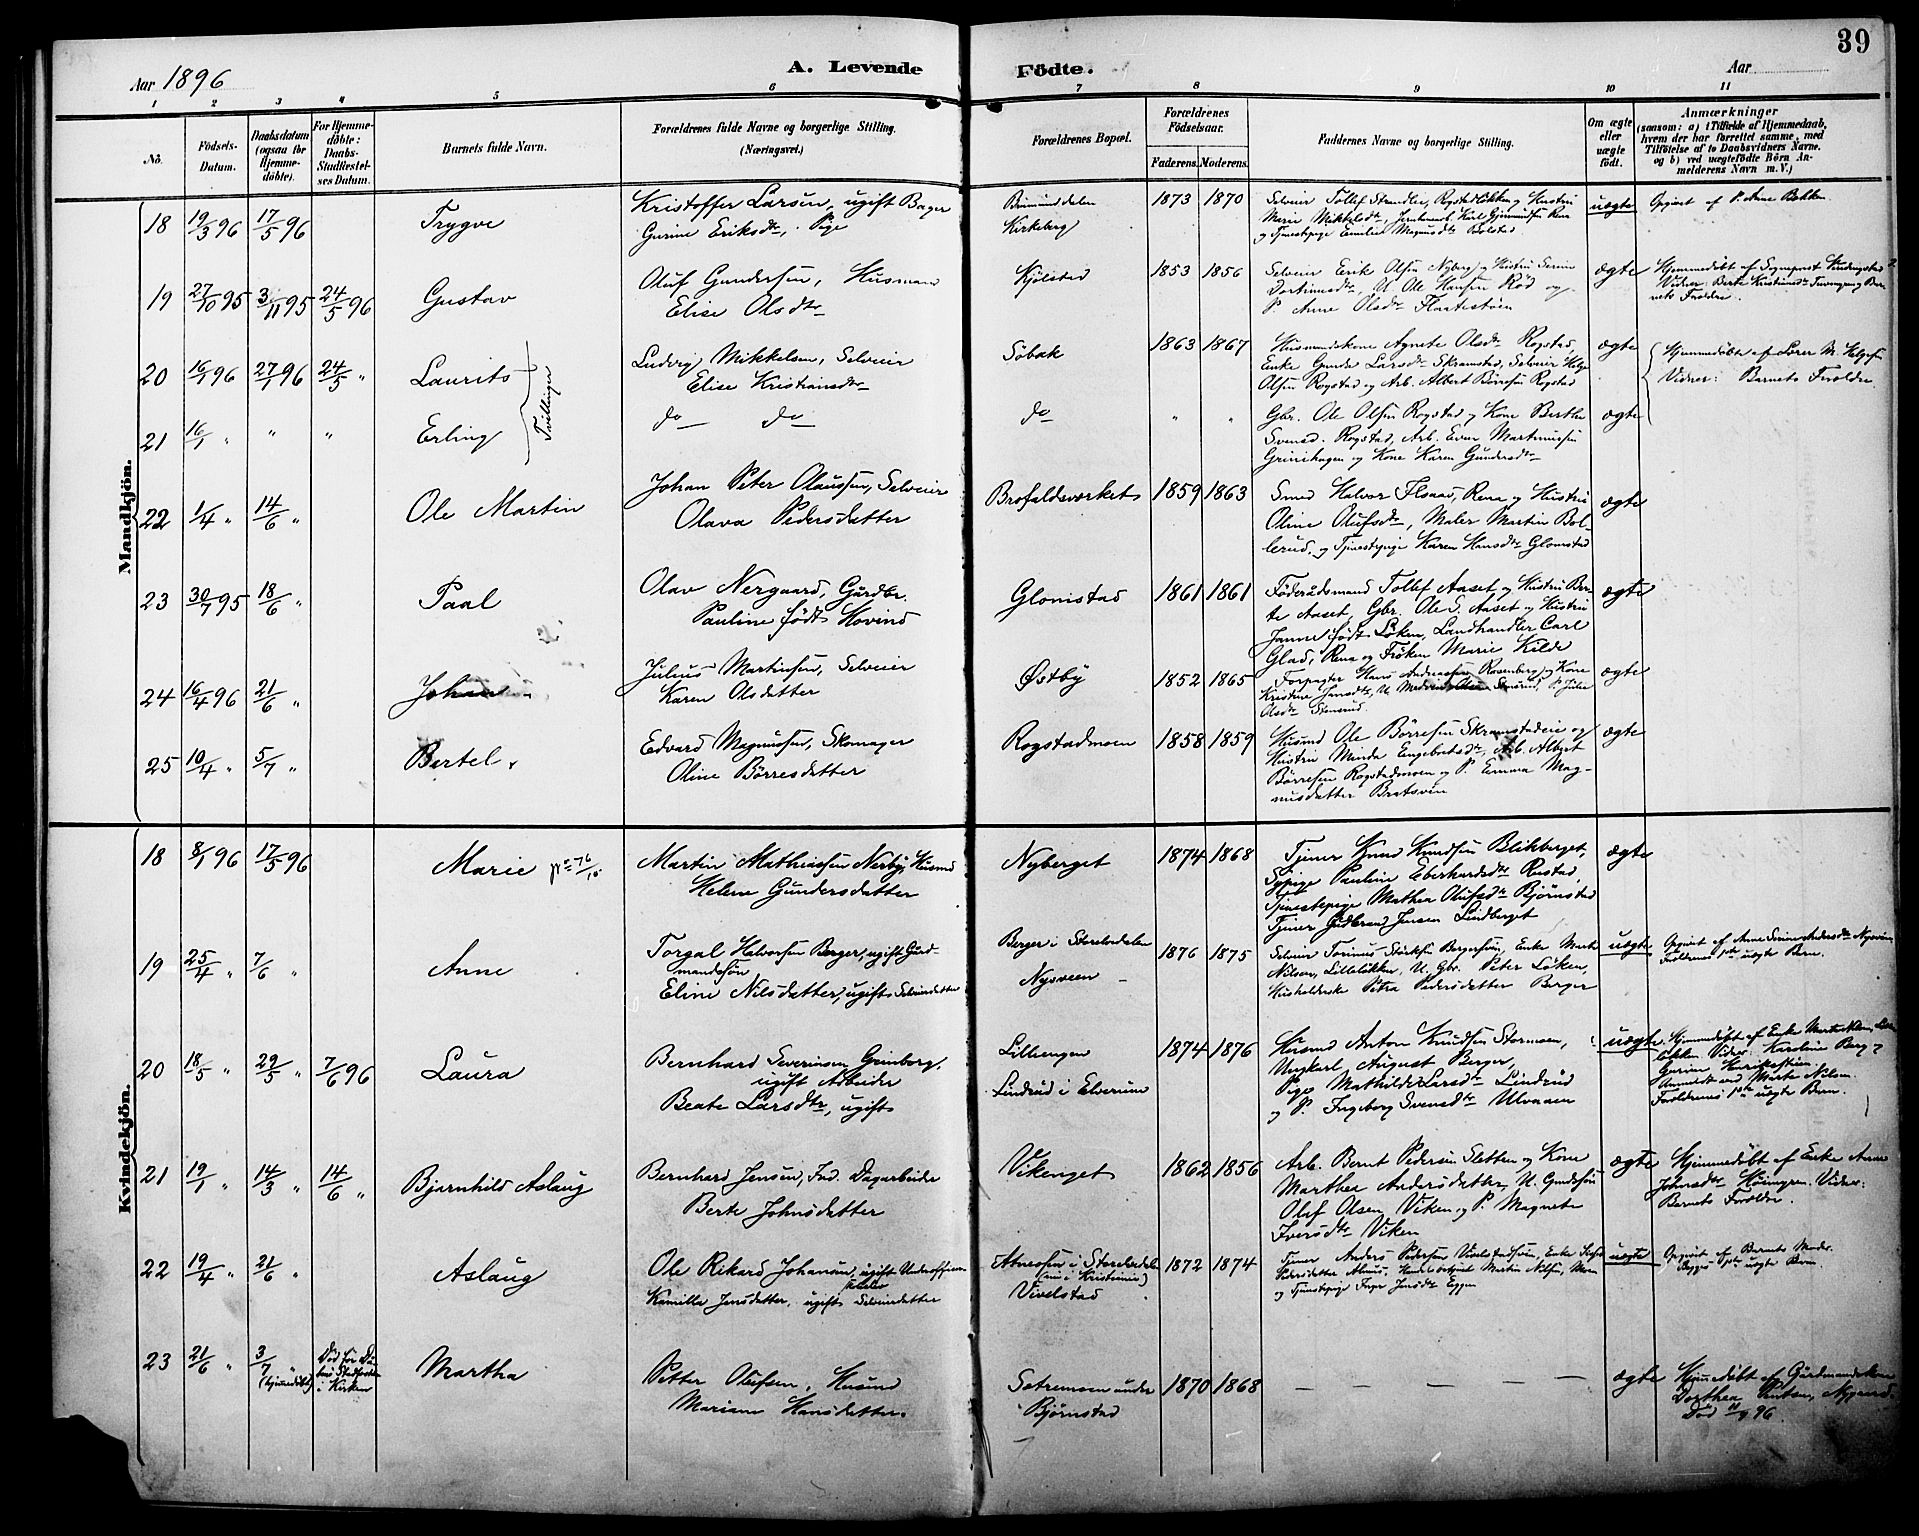 39
Aar 1896
A. Levende Födte.
Aar
1 2 3 4 5 6 7 8 9 10 11
No.
Födsels-Datum.
Daabsdatum (ogsaa for Hjemme-döbte).
For Hjemme-döbte: Daabs-Stadfæstel-ses Datum.
Barnets fulde Navn.
Forældrenes fulde Navne og borgerlige Stilling. (Næringsvei.)
Forældrenes Bopæl.
Forældrenes Födselsaar.
Faderens. Moderens.
Faddernes Navne og borgerlige Stilling.
Om ægte eller uægte födt.
Anmærkninger
(saasom: a) i Tilfælde af Hjemmedaab,
hvem der har forrettet samme, med
Tilföielse af to Daabsvidners Navne.
og b) ved uægtefödte Börn An-
melderens Navn m. V.)
Mandkjön.
18 19/3 96 17/5 96 Trygve
Kristoffer Larsen, ugift Bager
Gurine Eriksdtr, Pige
Kirkeberg
1873 1870
Selveier Tollef Strandlie, Rogstadløkken og Hustru
Marie Mikkelsdtr,
og Tjenestepige Emilie Magnusdtr Bolstad
uægte
Opgivet af P. Anne Bakken.
19 27/10 95 3/11 95 24/5 96 Gustav
Oluf Gundersen, Husmand
Elise Olsdtr
Kjølstad
1853 1856
Selveier Erik Olsen Nyberg og Hustru Serine
U. Ole Hansen Rød og
P. Anne Olsdtr Flaatestøen
ægte
Hjemmedøbt af Sogneprest
Vidner: Berte Kristiansdtr
20 16/1 96 27/1 96 24/5 " Laurits
Ludvig Mikkelsen, Selveier
Elise Kristiansdtr
Søbak
1863 1867
Husmandskone Agnete Olsdtr Rogstad,
Enke Gunda Larsdtr Skramstad, Selveier Helge
Olsen Rogstad og Arb. Albert Børresen Rogstad
ægte
Hjemmedøbt af Lærer M. Helgesen
Vidner: Barnets Forældre
Tvillinger
21 16/1 " " " Erling
do do
do " "
Gbr. Ole Olsen Rogstad og Kone Berthe
Svensd. Rogstad, Arb. Even Martinussen
Grinihagen og Kone Karen Gundersdtr
ægte
22 1/4 " 14/6 " Ole Martin
Johan Peter Olaussen, Selveier
Olava Pedersdatter
Brofaldsværket
1859 1863
Smed Halvor Flaaad, Rena og Hustru
Oline Olufsdtr, Maler Martin Bol-
lerud, og Tjenestepige Karen Hansdtr Glomstad
ægte
23 30/7 95 18/6 " Paal
Olav Nergaard, Gårdbr.
Pauline født Hovind
Glomstad
1861 1861
Føderådsmand Tollef Aaset og Hustru Ber-
te Aaset, Gbr. Ole S. Aaset og Hustru
Janne født Løken, Landhandler Carl
Glad, Rena og Frøken Marie Kilde
ægte
24 16/4 96 21/6 " Johan
Julius Martinsen, Selveier
Karen Olsdatter
Østby
1852 1865
Forpagter Hans Andreassen Rosenberg og Kone
Kristine Jensdtr, U. Stensrud, P. Julie
Olsdtr Stensrud
ægte
25 10/4 " 5/7 " Bertel
Edvard Magnussen, Skomager
Oline Børresdatter
Rogstadmoen
1858 1859
Husmd Ole Børresen Skramstadeie og
Hustru Minda Engebretsdtr, Arb. Albert
Børresen Rogstadmoen og P. Emma Mag-
nusdatter Bratsveen
ægte
Kvindekjön.
18 8/1 96 17/5 96 Marie
Martin Mathiassen Nesby, Husmd
Helene Gundersdatter
Nyberget
1874 1868
Tjener Knud Knudsen Blikberget,
Sypige Pauline Eberhardsdtr Rustad,
Tjenestepige Mathea Olufsdtr Bjørnstad
Tjener Gudbrand Jensen Lindberget
ægte
19 25/4 " 7/6 " Anne
Torgal Halvorsen Berger, ugift Gård-
mandssøn
Eline Nilsdatter, ugift Selveierdatter
Berger i Storelvdalen
Nysveen
1876 1875
Selveier Bergersveen, Enke Marte
Nilsen, Lilleløkken, U. Gbr. Peter Løken,
Husholderske Petra Pedersdatter Berger
uægte
Opgivet af Anne Andersdtr Nysveen
Forældrenes 1ste uægte Barn.
20 18/5 " 29/5 " 7/6 96 Laura
Bernhard Severinsen Grinborg,
ugift Arbeider
Beate Larsdtr, ugift
Lillrengen
Lindrud i Elverum
1874 1876
Husmd Anton Knudsen Stormoen,
Ungkarl August Berger,
Pige Mathilde Larsdtr Lindrud
og P. Ingeborg Svensdtr Ulvaaen
uægte
Hjemmedøbt af Enke Marte Nilsen,
Vidner: Karoline Berg
Gurine
Anmeldt ved Marte Nilsen.
Forældrenes 1ste uægte Barn.
21 19/1 " 14/3 " 14/6 " Bjarnhild Aslaug
Bernhard Jensen, Ind. Dagarbeider
Berte Johnsdatter
Vikenget
1862 1856
Arb. Bernt Pedersen Sletten og Kone
Marthea Andersdatter, U. Gmdsøn
Olaf Olsen Viken, og P. Magnete
Iversdtr Viken
ægte
Hjemmedøbt af Enke Anne
Johnsdtr Vidner:
Barnets Forældre.
22 19/4 " 21/6 " Aslaug
Ole Rikard Johansen, ugift Underofficer
Kamilla Jensdatter, ugift Selveierdatter
Atneosen i Storelvdalen
(nu i Kristiania)
Vivelstad
1872 1874
Tjener Anders Pedersen Vivelstadsveen, Enke
Pedersdatter Martin Nilsen, Moen
og Tjenestepige Inger Jensdtr Eggen
uægte
Opgivet af Barnets Moder.
Begges 1ste uægte Barn.
23 21/6 " 3/7 " (hjemmedøbt)
Død før Daa-
bens Stadfæstelse
i Kirken
Martha
Petter Olufsen, Husmd
Mariane Hansdatter.
Sætremoen under
Bjørnstad
1870 1868
— — — — — —
ægte
Hjemmedøbt af Gårdmandskone
Dorthea Knutsen, Nygaard.
Død 11/9 96.